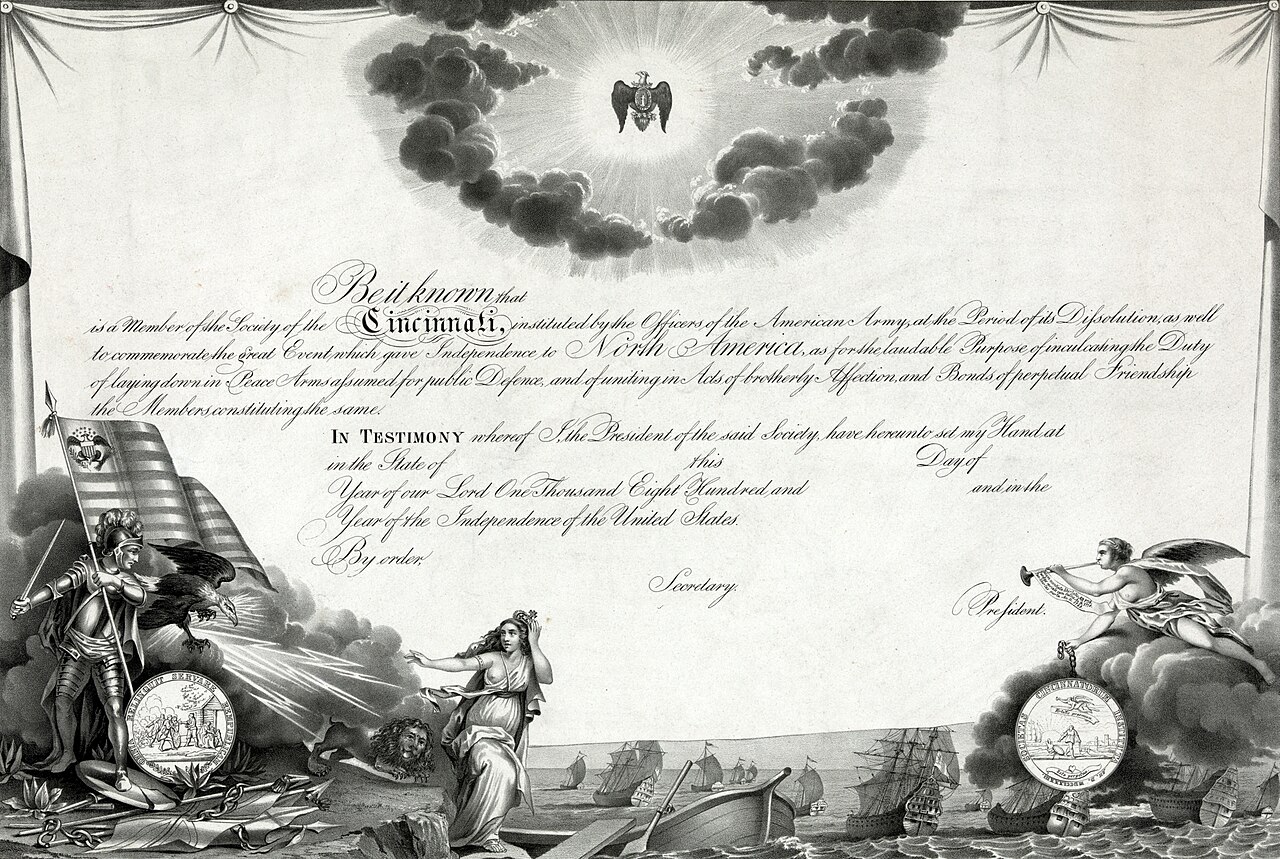 Be it known, that
is a Member of the Society of the Cincinnati, instituted by the Officers of the American Army, at the Period of its Dissolution, as well
to commemorate the great Event which gave Independence to North America, as for the laudable Purpose of inculcating the Duty
of laying down in Peace Arms assumed for public Defence, and of uniting in Acts of brotherly Affection, and Bonds of perpetual Friendship
the Members constituting the same.
In Testimony whereof I, the President of the said Society, have hereunto set my Hand at
in the State of this Day of
Year of our Lord One Thousand Eight Hundred and and in the
Year of the Independence of the United States.
By order,
Secretary.
President.
RELINQUIT SERVARE
SOCIETAS CINCINNATORUM